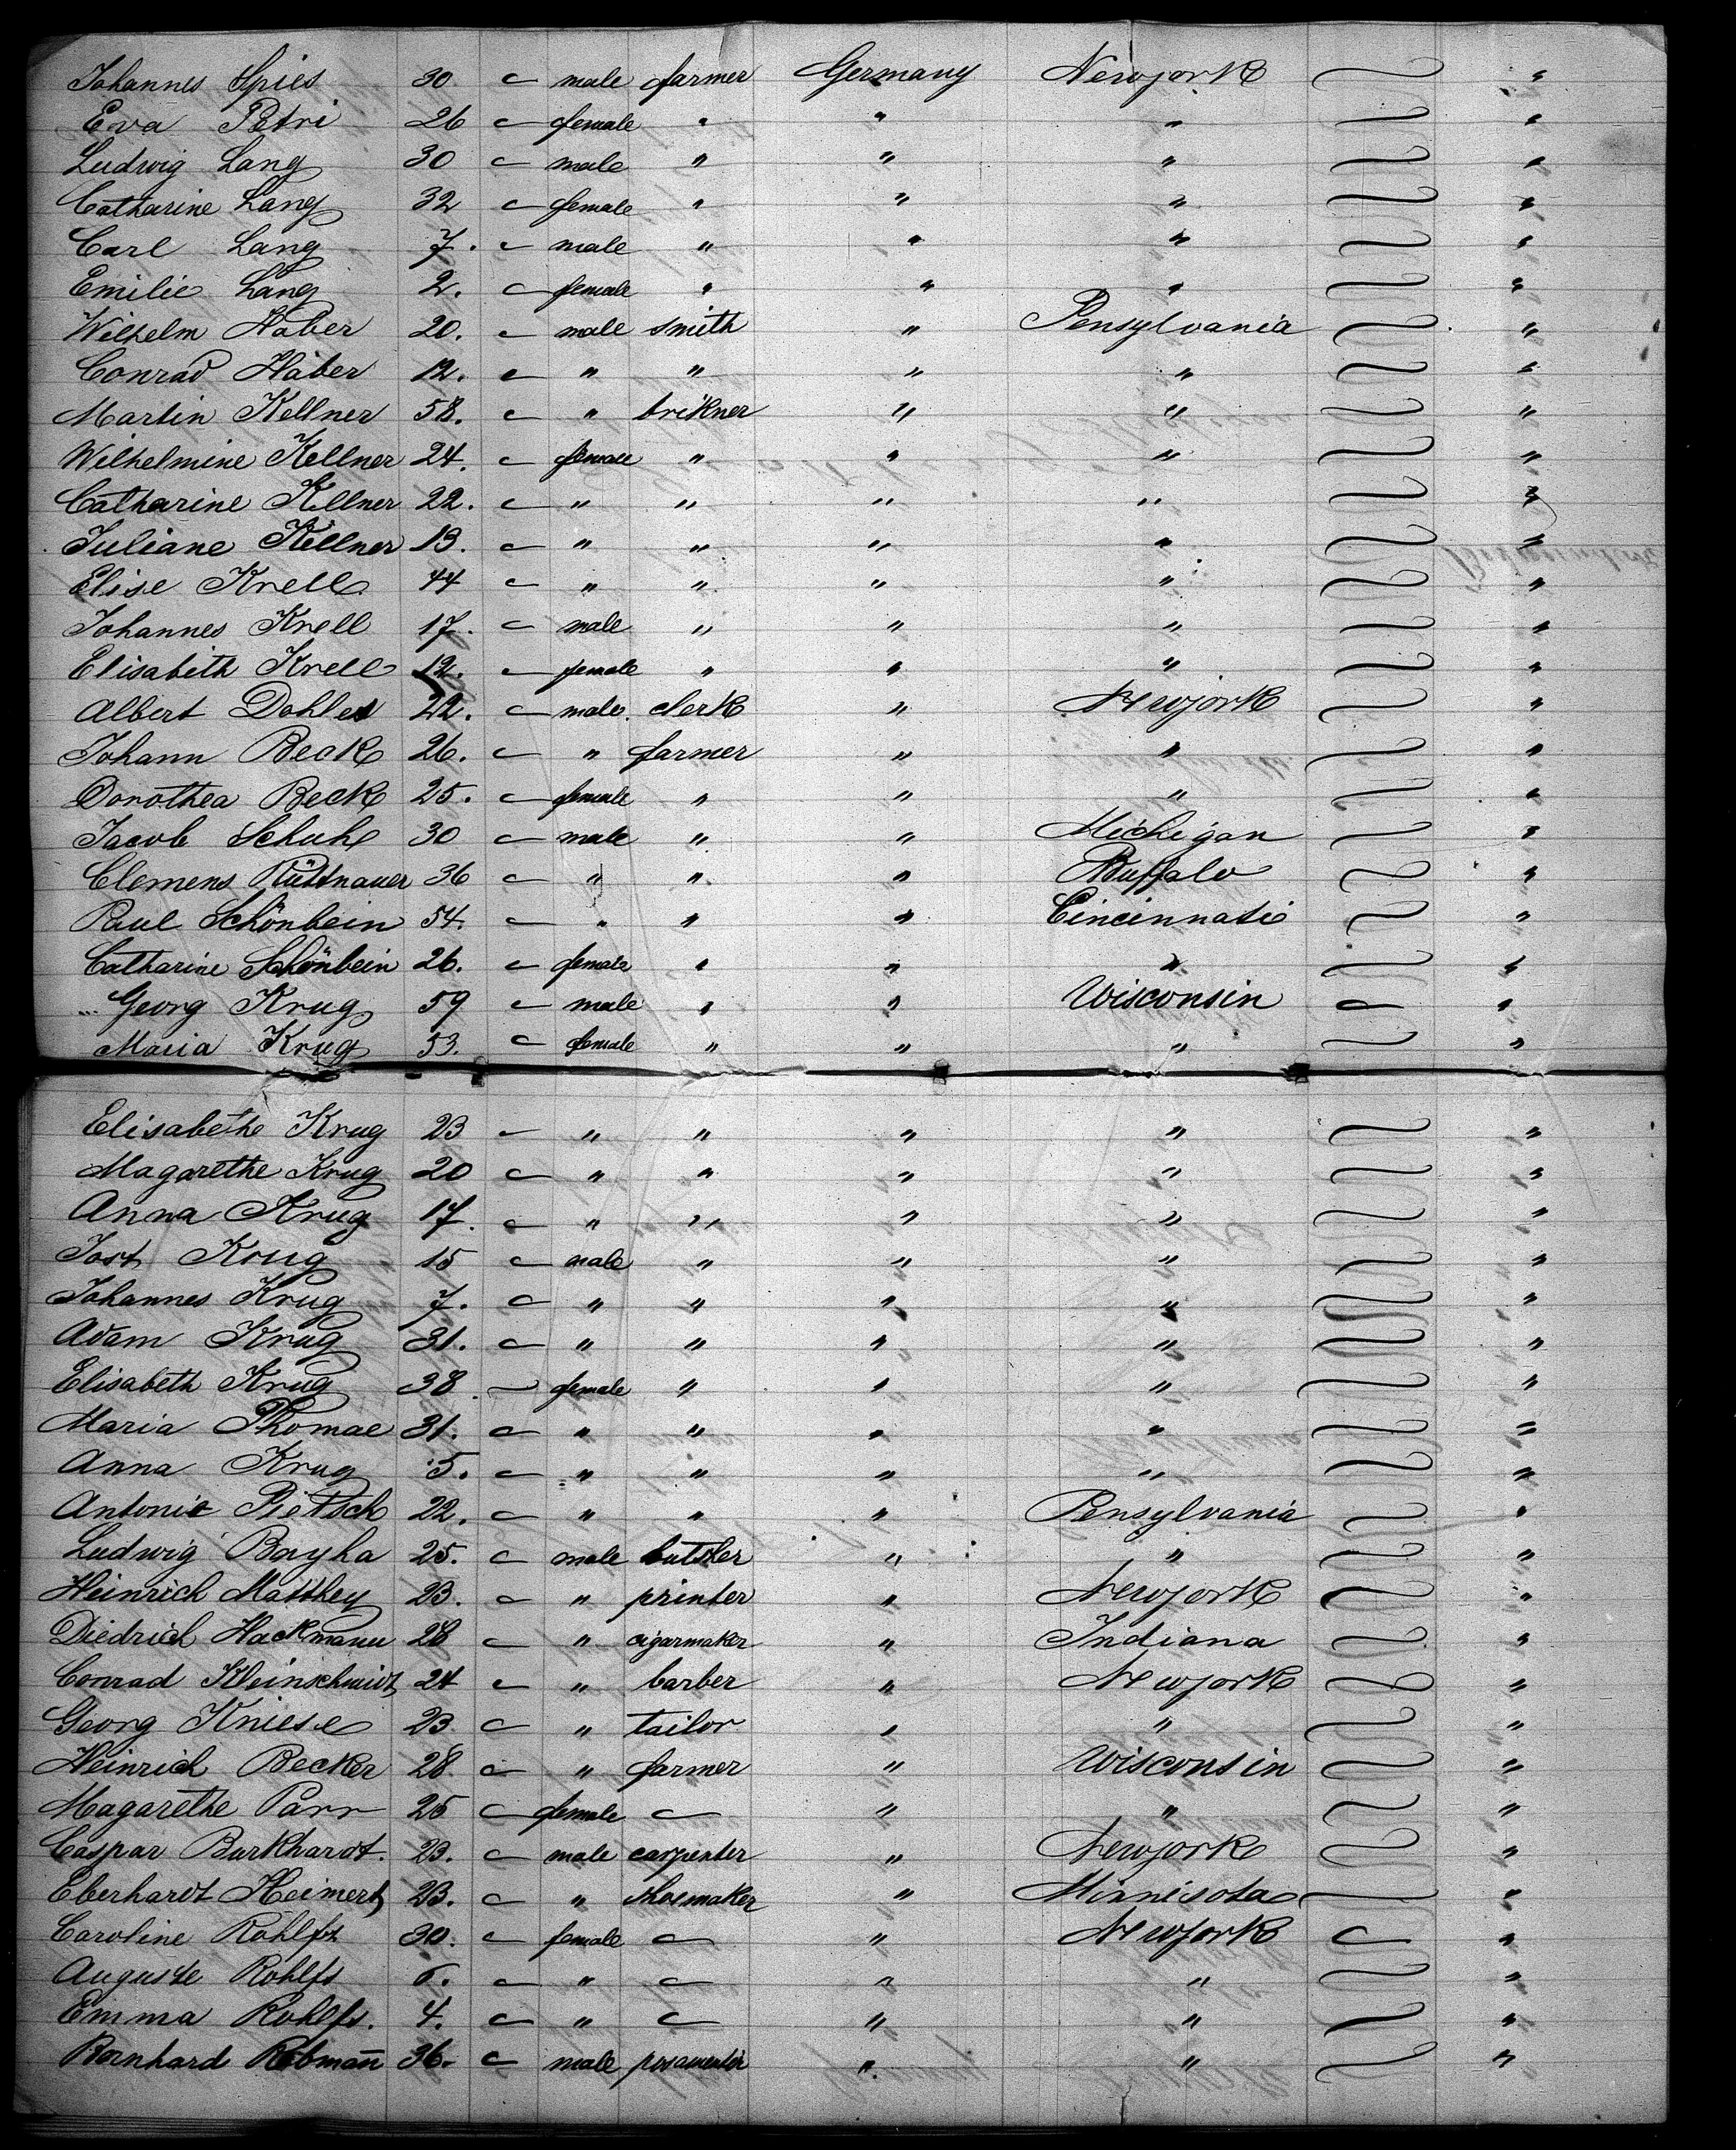 Johannes Spies 30 male farmer Germany Newjork "
Eva Petri 26 female " " " "
Ludwig Lang 30 male " " " "
Catharine Lang 32 female " " " "
Carl Lang 7. male " " " "
Emilie Lang 2. female " " " "
Wilhelm Häber 20. male smith " Pensylvania "
Conrad Häber 12. " " " " "
Martin Kellner 58. " brikner " " "
Wilhelmine Kellner 24. female " " " "
Catharine Kellner 22. " " " " "
Juliane Kellner 13. " " " " "
Elise Krell 44 " " " " "
Johannes Krell 17. male " " " "
Elisabeth Krell 12. female " " " "
Albert Dohles 22. male. clerk " Newjork "
Johann Beck 26. " farmer " " "
Dorothea Beck 25. female " " " "
Jacob Schuh 30 male " " Michigan "
Clemens Rüttnauer 36 " " " Buffalo "
Paul Schönbein 54. " " " Cincinnati "
Catharine Schönbein 26. female " " " "
Georg Krug 59 male " " Wisconsin "
Maria Krug 53. female " " " "
Elisabethe Krug 23 " " " " "
Magarethe Krug 20 " " " " "
Anna Krug 17. " " " " "
Jost Krug 15 male " " " "
Johannes Krug 7. " " " " "
Adam Krug 31. " " " " "
Elisabeth Krug 38. female " " " "
Maria Thomae 31. " " " " "
Anna Krug 5. " " " " "
Antonie Pietsch 22. " " " Pensylvania "
Ludwig Bayha 25. male butsher " " "
Heinrich Matthey 23. " printer " Newjork "
Diedrich Hackmann 28 " cigarmaker " Indiana "
Conrad Kleinschmidt 24 " barber " Newjork "
Georg Kniese 23. " tailor " " "
Heinrich Becker 28. " farmer " Wisconsin "
Magarethe Parr 25 female " " "
Caspar Burkhardt. 23. male carpenter " Newjork "
Eberhardt Heimert 23. " shoemaker " Minnisota "
Caroline Rohlfs 30. female " Newjork "
Auguste Rohlfs 6. " " " "
Emma Rohlfs. 4. " " " "
Bernhard Rebmañ 36. male posamentir " " "